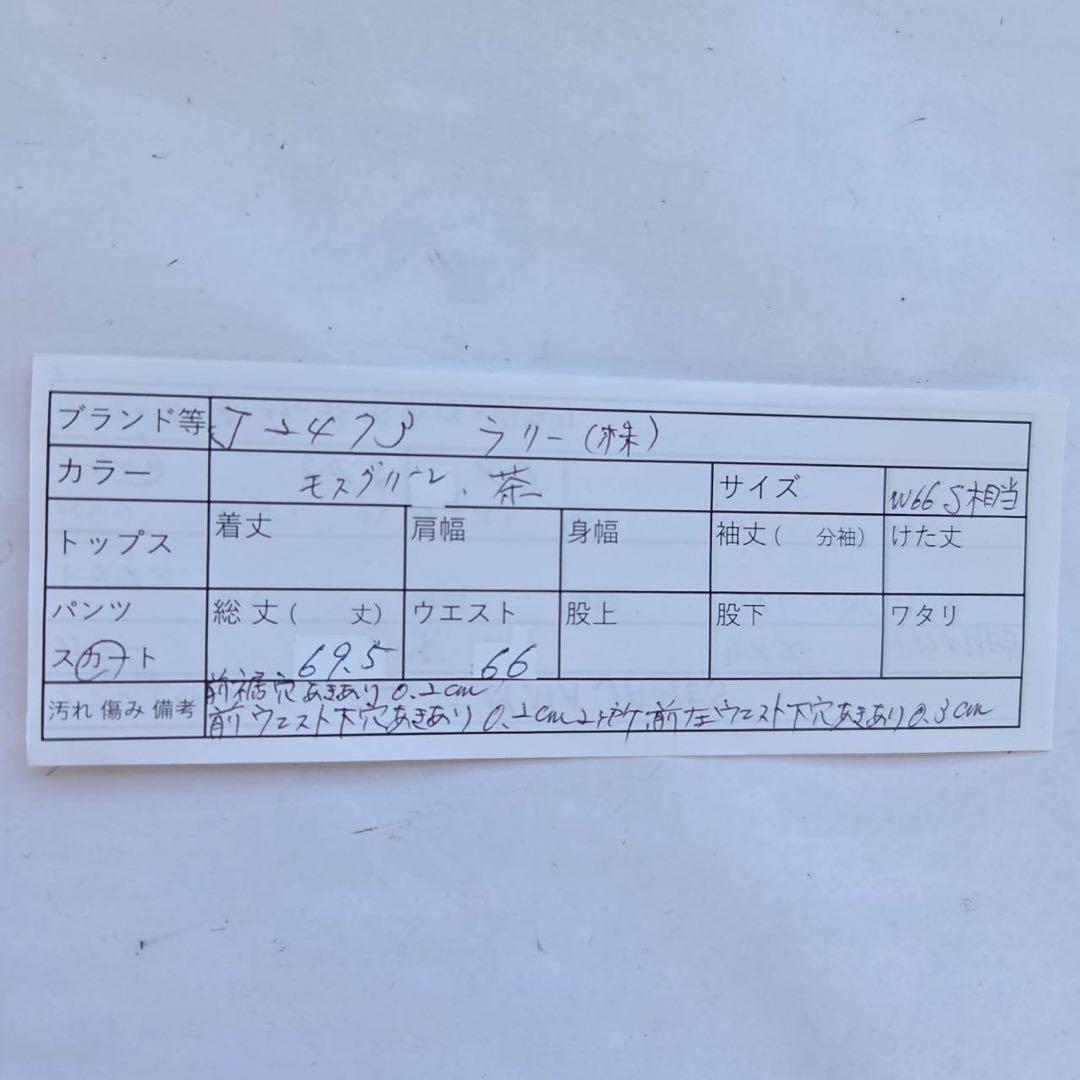 ブランド等 J-2473 ラリー(株)
カラー モスグリーン、茶 サイズ W66 S相当
トップス 着丈 肩幅 身幅 袖丈( 分袖) けた丈
パンツ 総丈( 丈) ウエスト 股上 股下 ワタリ
スカート 69.5 66
前裾穴あきあり 0.2cm
汚れ 傷み 備考 前ウエスト下穴あきあり 0.2cm 2ヶ所、前左ウエスト下穴あきあり0.3cm